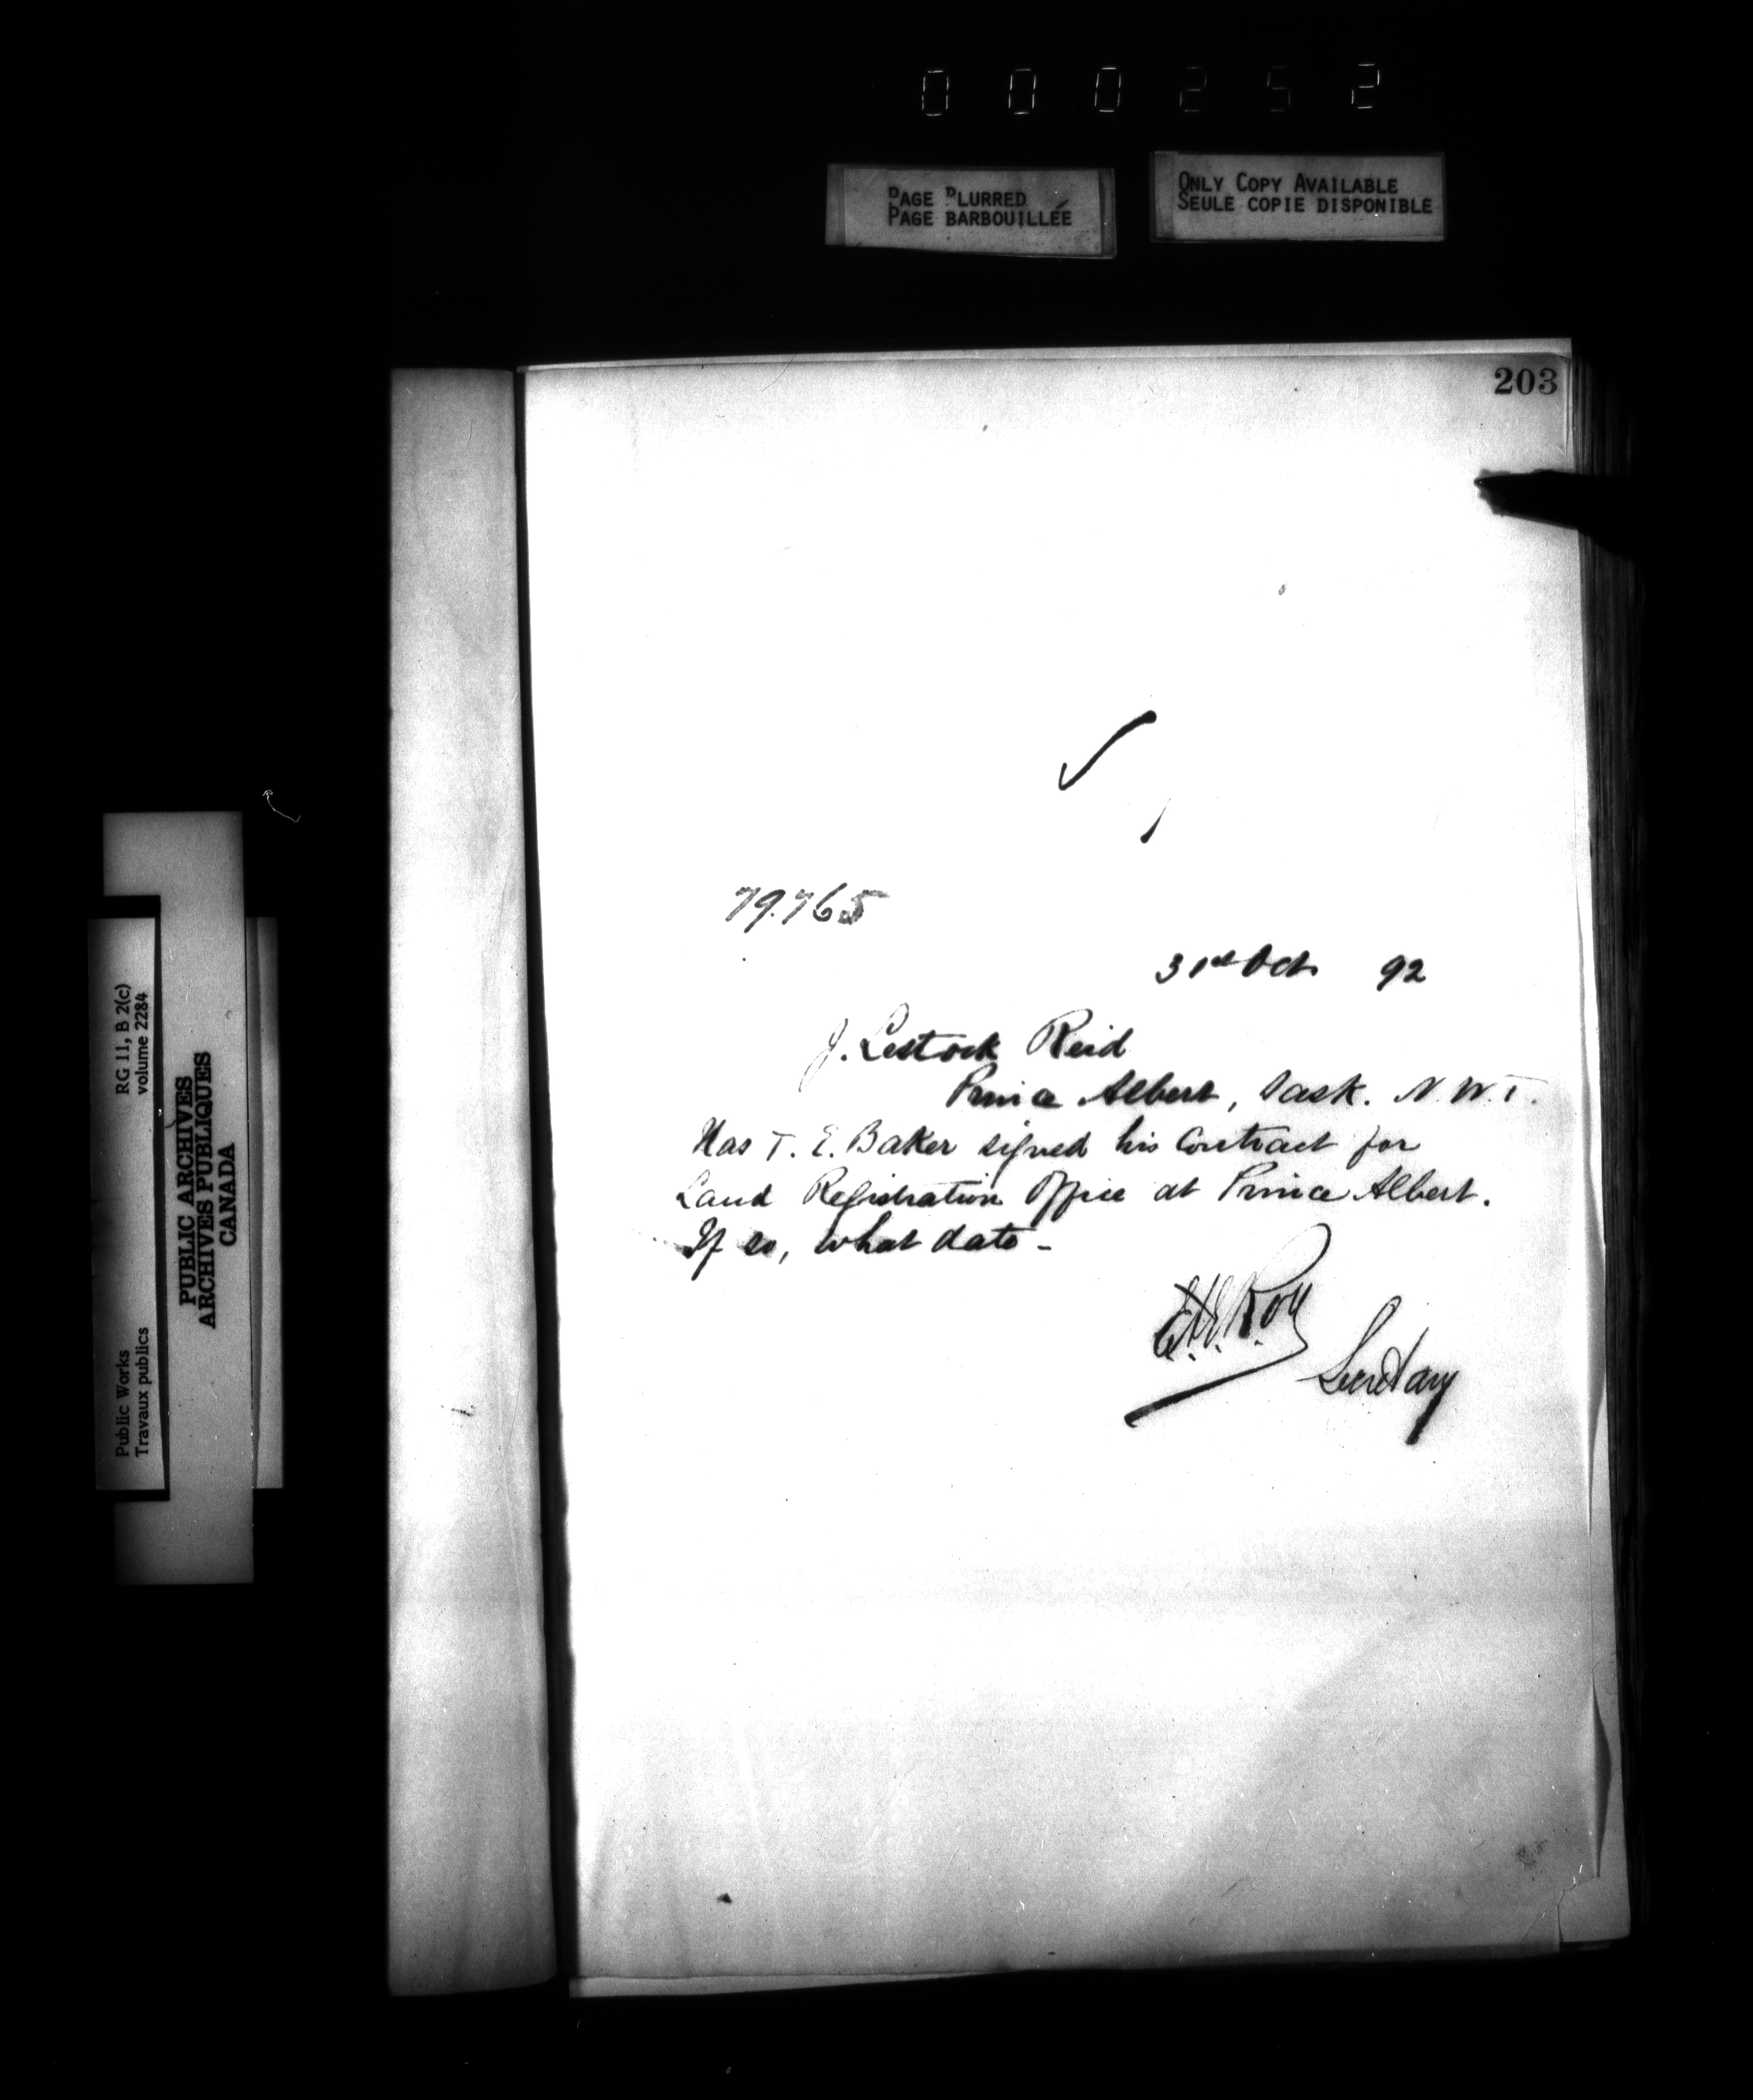 000252
PAGE BLURRED
PAGE BARBOUILLÉE
ONLY COPY AVAILABLE
SEULE COPIE DISPONIBLE
203
79.765
31st Oct 92
J. Lestock Reid
Prince Albert, Sask. N.W.T.
Has T. E. Baker signed his Contract for
Land Registration Office at Prince Albert.
If so, what date -
E.F.E. Roy
Secretary
Public Works
Travaux publics
RG 11, B 2(c)
volume 2284
PUBLIC ARCHIVES
ARCHIVES PUBLIQUES
CANADA